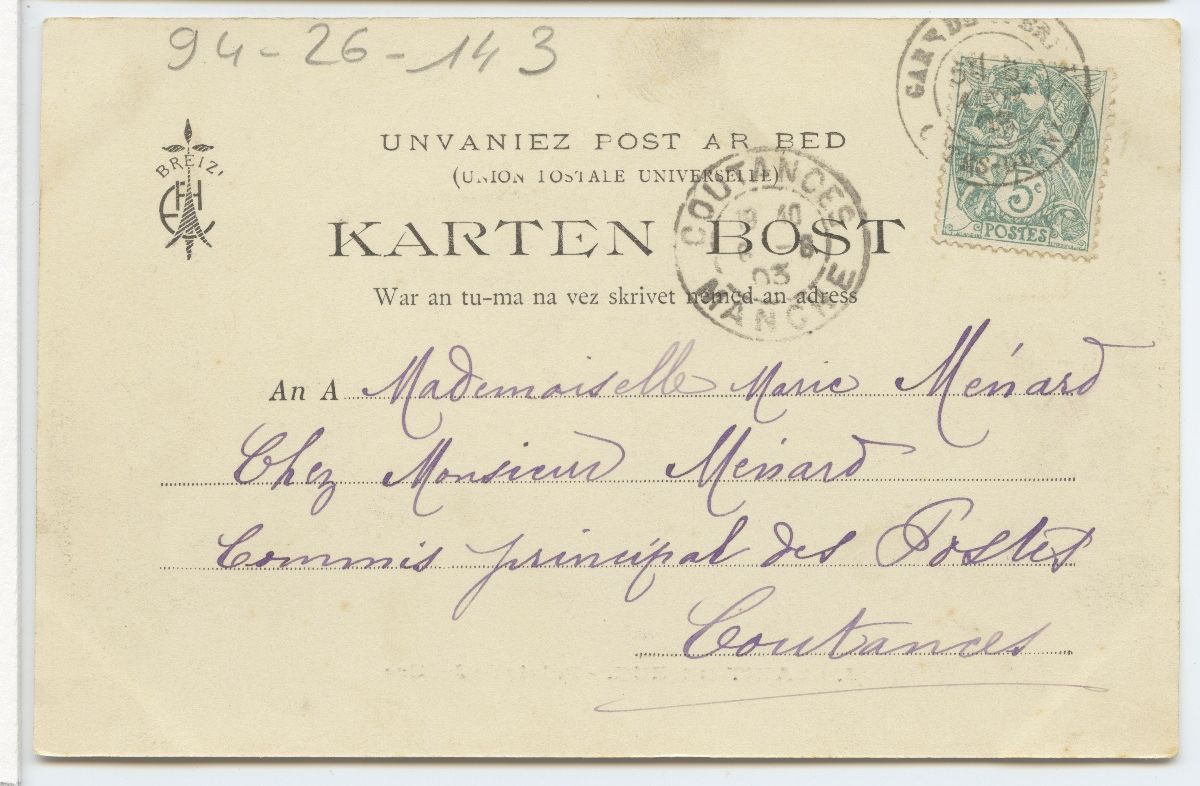 94-26-143
UNVANIEZ POST AR BED
(UNION POSTALE UNIVERSELLE)
BREIZ
KARTEN BOST
War an tu-ma na vez skrivet nemed an adress
COUTANCES
03
MANCHE
5c
POSTES
An A Mademoiselle Marie Ménard
Chez Monsieur Ménard
Commis principal des Postes
Coutances